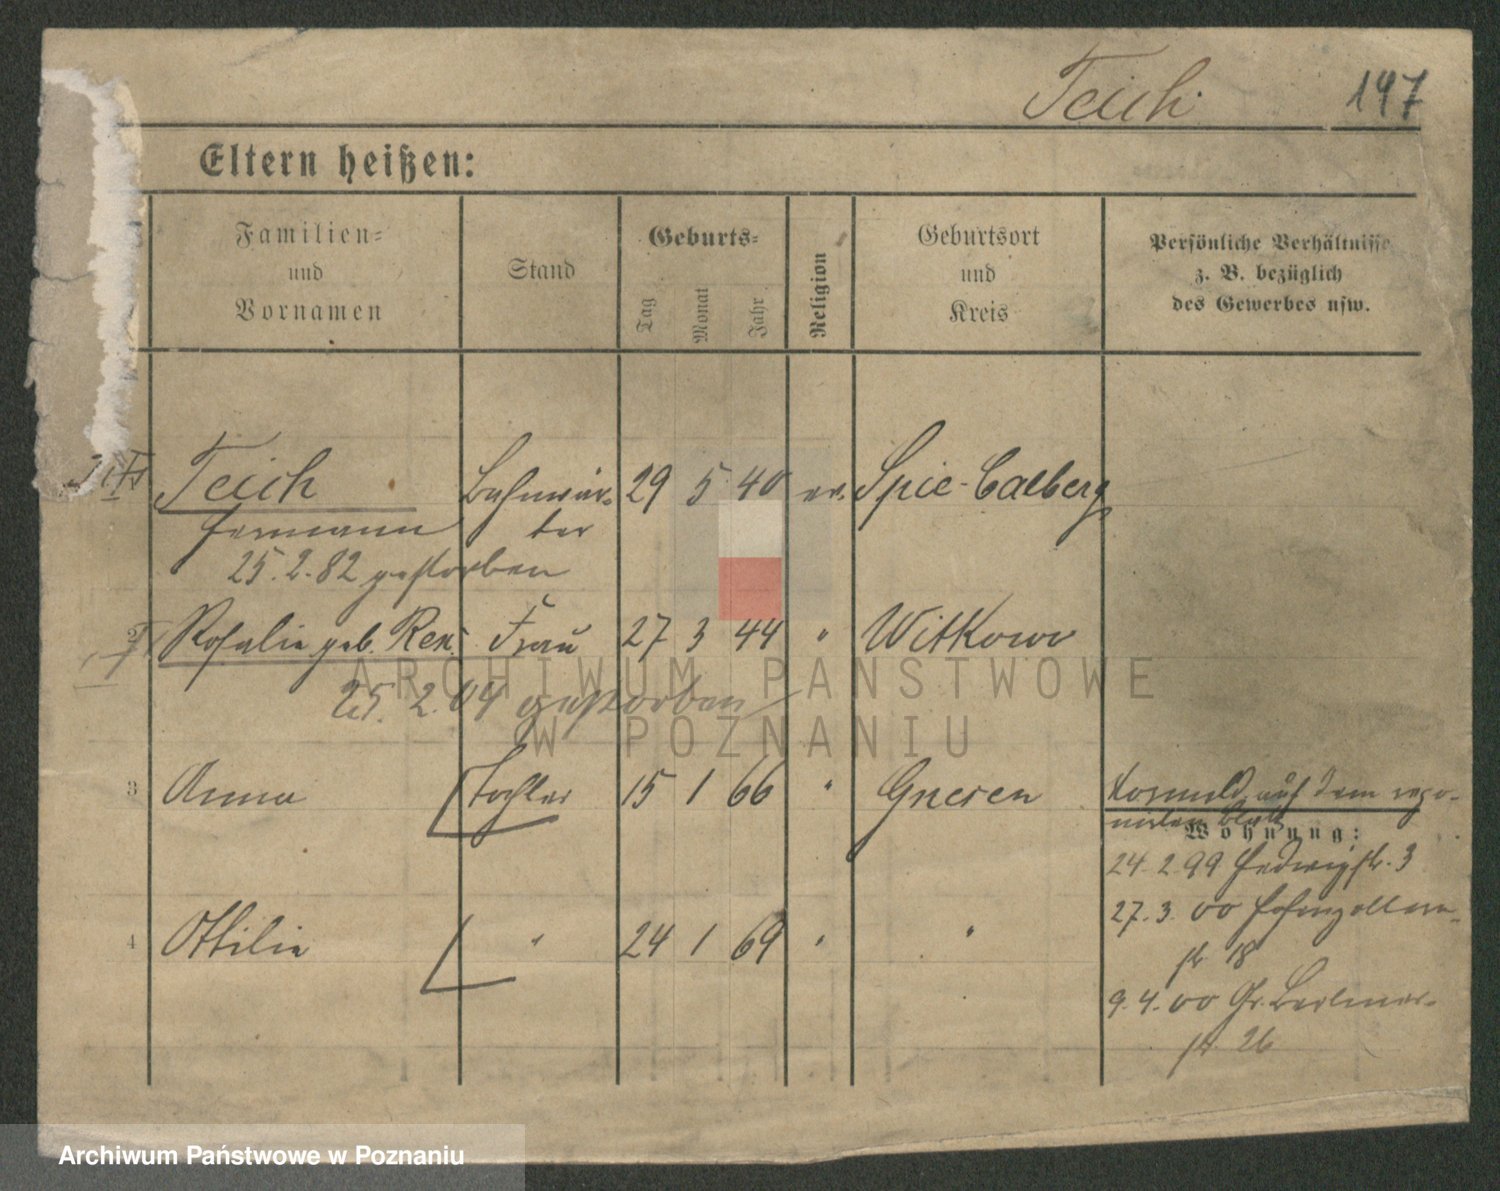 Teich
197
Eltern heißen:
Familien=
und
Vornamen
Stand
Geburts=
Tag
Monat
Jahr
Religion
Geburtsort
und
Kreis
Persönliche Verhältnisse
z. B. bezüglich
des Gewerbes usw.
Teich Bahnwär- 29 5 40 ev. Spie-Calberg
Hermann ter
25.2.82 gestorben
2 Rosalie geb. Frau 27 3 44 " Witkowo
25.2.04 gestorben
ARCHIWUM PAŃSTWOWE
W POZNANIU
3 Anna Tochter 15 1 66 " Gnesen
auf dem
Wohnung:
24.2.99 Hedwigstr. 3
27.3.00 Hohenzollern-
str 18
4 Ottilie " 24 1 69 " "
9.4.00 Gr. Berliner-
str 26
Archiwum Państwowe w Poznaniu